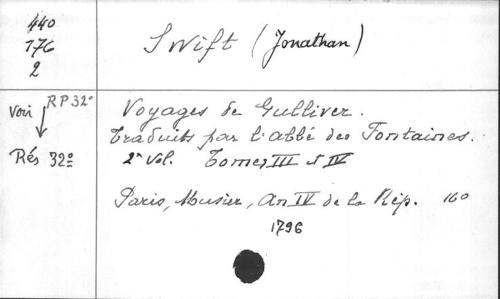 440
176
2
Swift (Jonathan)
Voir RP 32°
Rés 32º
Voyages de Gulliver.
Traduits par l'abbé des Fontaines.
2° vol. Tomes III et IV
Paris, Musier, An IV de la Rép. 160
1796